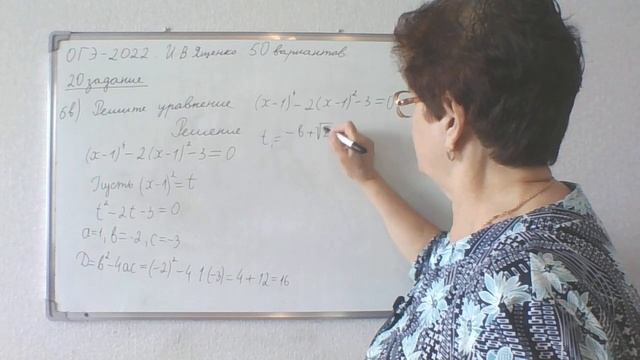 ОГЭ-2022 И В Ященко 50 вариантов
20 задание
6в) Решите уравнение (x-1)⁴-2(x-1)²-3=0
Решение
(x-1)⁴-2(x-1)²-3=0
Пусть (x-1)²=t
t²-2t-3=0
a=1, в=-2, c=-3
D=в²-4ac=(-2)²-4·1·(-3)=4+12=16
t₁=-в+√